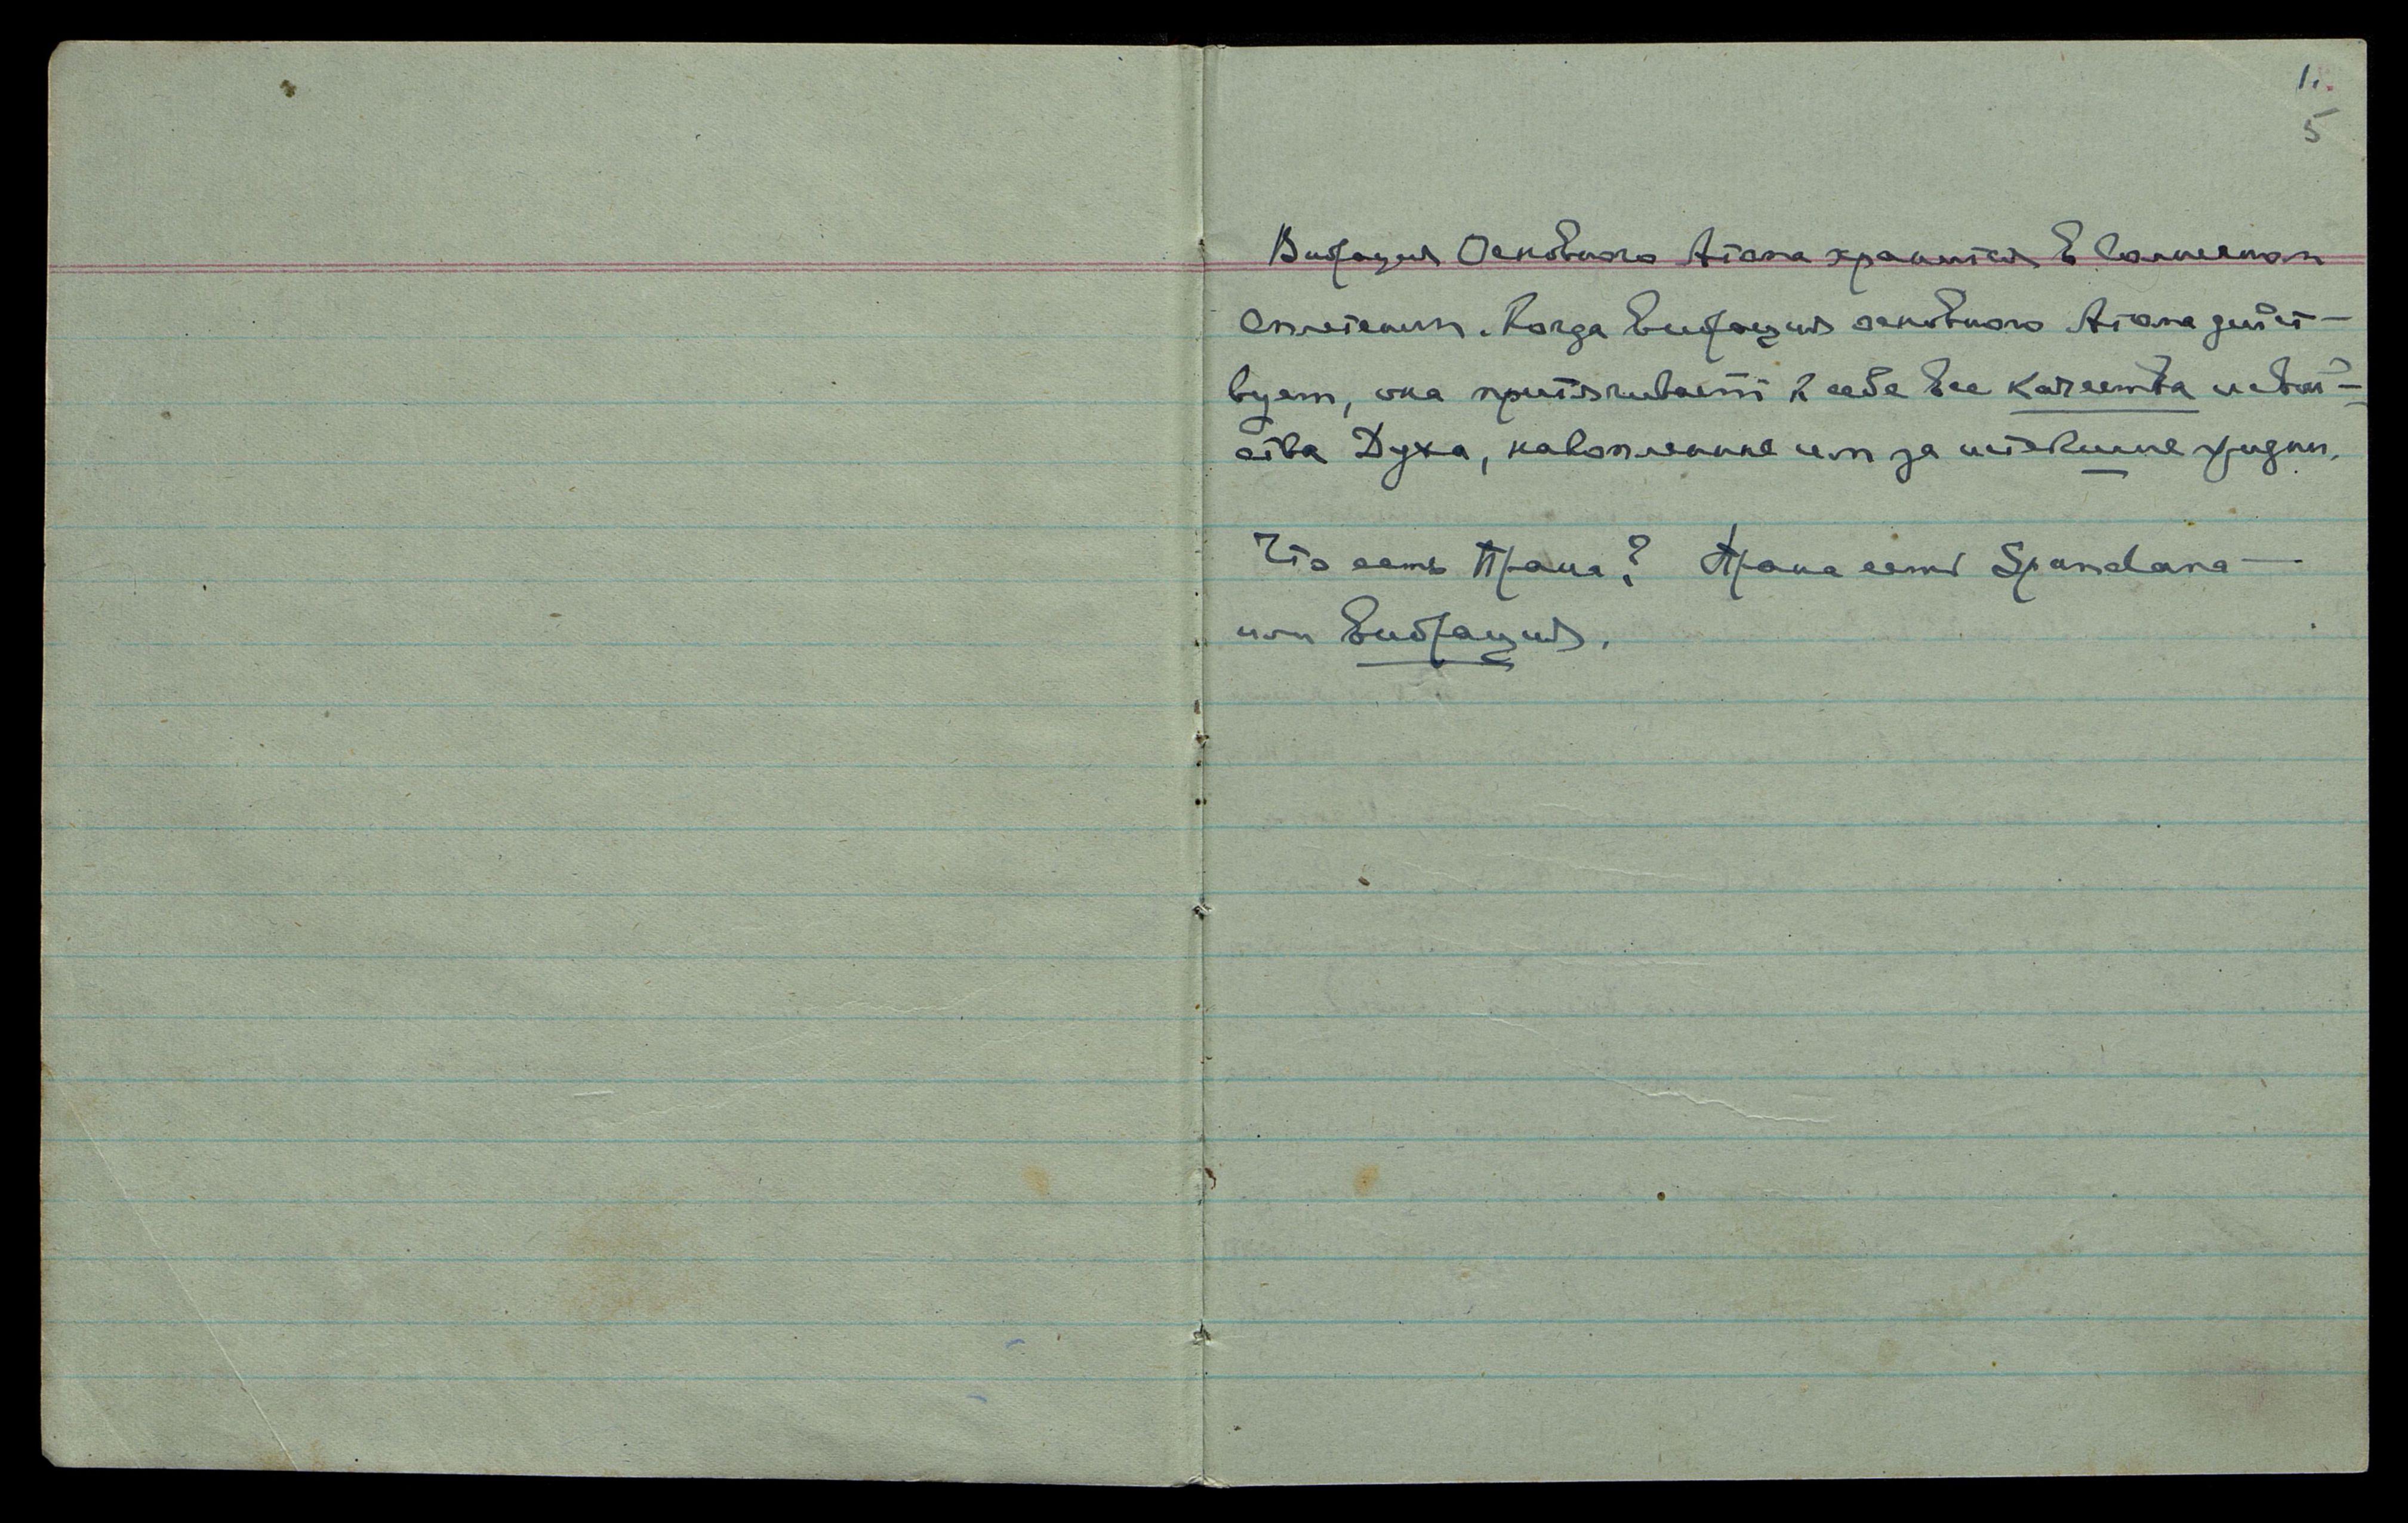 1.
5
Вибрация Основного Атома хранится в Солнечном
Сплетении. Когда вибрация основного Атома дейст-
вует, она притягивает к себе все качества и свой-
ства Духа, накопленные им за истекшие жизни.
Что есть Прана? Прана есть Spandana —
или вибрация.